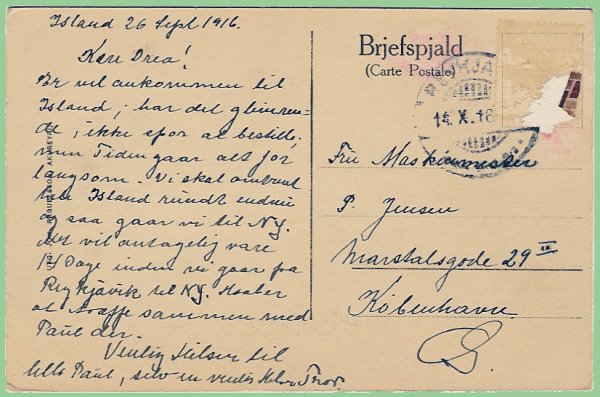 Island 26 Sept 1916.
Kære Drea!
Er vel ankommen til
Island; har det glimren-
de, ikke spor at bestille,
men Tiden gaar alt for
langsom. Vi skal omtrent
hen Island rundt endnu
og saa gaar vi til N.Y.
det vil antagelig vare
12/ Dage inden vi gaar fra
Reykjávik til N.Y. Haaber
at træffe sammen med
Paul der.
Venlig Hilsen til
lille Paul, selv en venlig Hilsen
Brjefspjald
(Carte Postale)
REYKJA
14.X.16
Fru Maskinmester
P. Jensen
Marstalsgade 29 III
København
Ø.
AKUREYRI